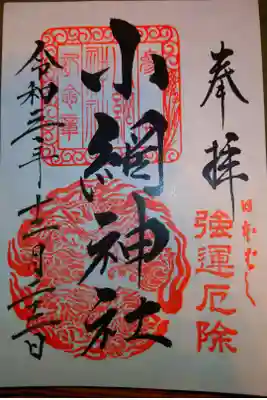 奉拝
日本ばし
強運厄除
小網神社
令和三年十二月二十三日